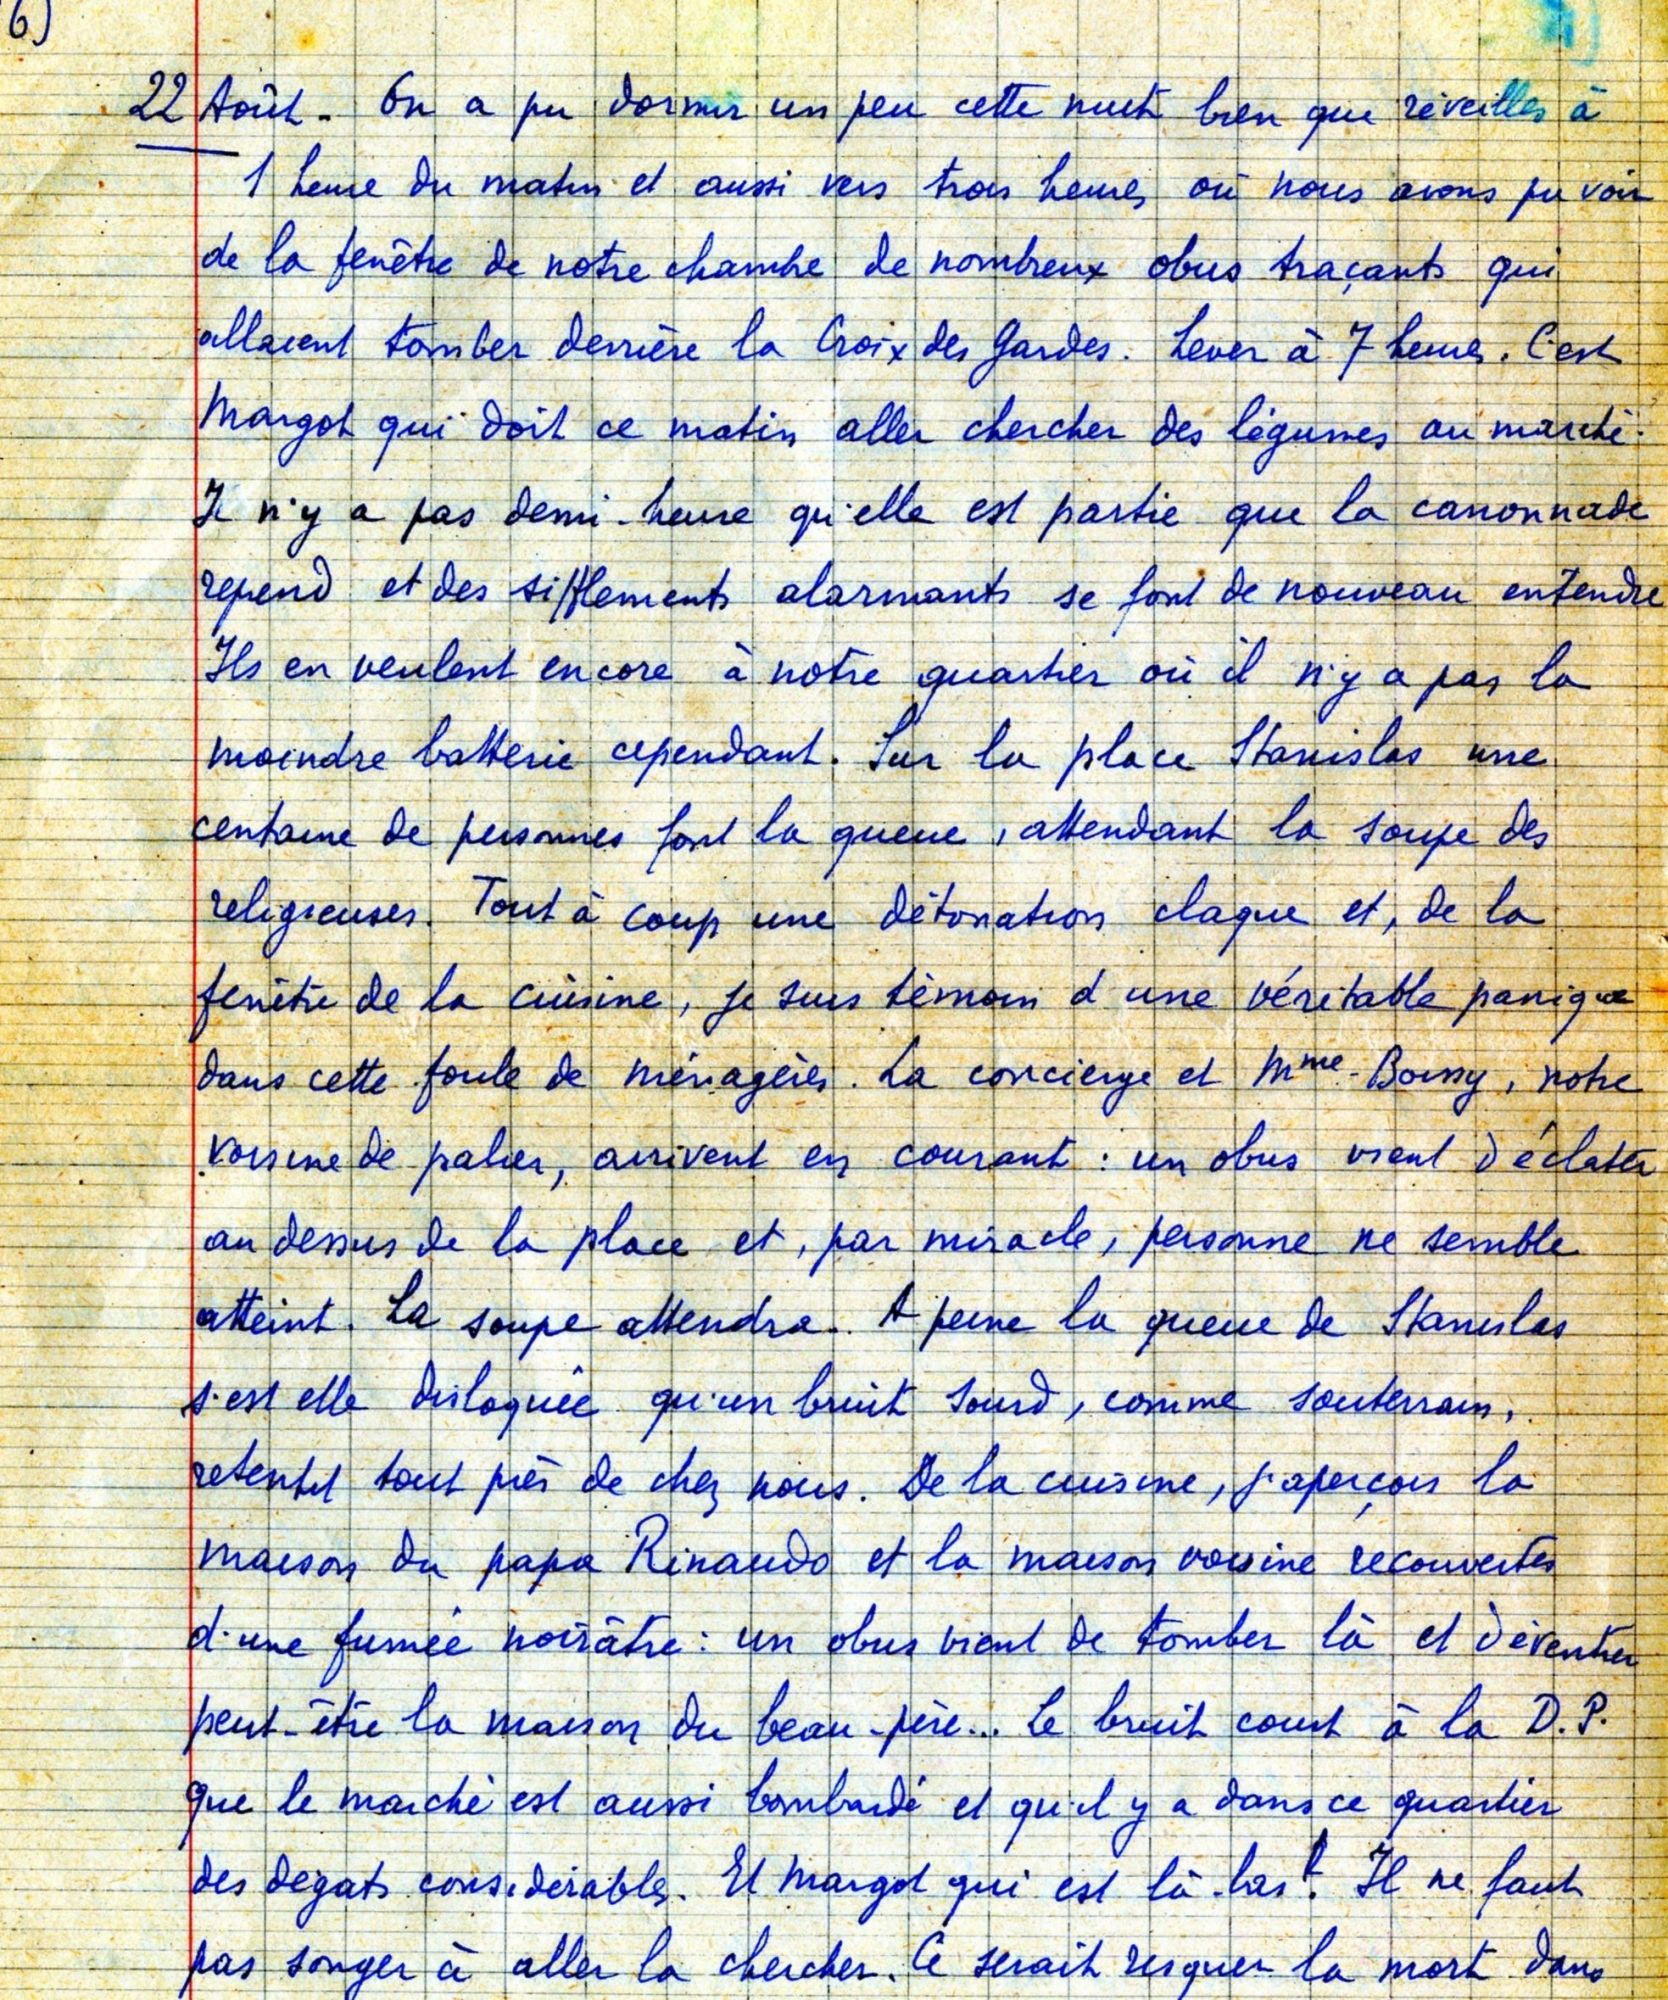 6)
22 Août - On a pu dormir un peu cette nuit bien que réveillés à
1 heure du matin et aussi vers trois heures où nous avons pu voir
de la fenêtre de notre chambre de nombreux obus traçants qui
allaient tomber derrière la Croix des Gardes. Lever à 7 heures. C'est
Margot qui doit ce matin aller chercher des légumes au marché.
Il n'y a pas demi-heure qu'elle est partie que la canonnade
repend et des sifflements alarmants se font de nouveau entendre
Ils en veulent encore à notre quartier où il n'y a pas la
moindre batterie cependant. Sur la place Stanislas une
centaine de personnes font la queue, attendant la soupe des
religieuses. Tout à coup une détonation claque et, de la
fenêtre de la cuisine, je suis témoin d'une véritable panique
dans cette foule de ménagères. La concierge et Mme Boissy, notre
voisine de palier, arrivent en courant : un obus vient d'éclater
au dessus de la place et, par miracle, personne ne semble
atteint. La soupe attendra. A peine la queue de Stanislas
s'est elle disloquée qu'un bruit sourd, comme souterrain,
retentit tout près de chez nous. De la cuisine, j'aperçois la
maison du papa Rinaudo et la maison voisine recouvertes
d'une fumée noirâtre : un obus vient de tomber là et d'éventrer
peut-être la maison du beau-père... Le bruit court à la D.P.
que le marché est aussi bombardé et qu'il y a dans ce quartier
des dégats considérables. Et Margot qui est là-bas ! Il ne faut
pas songer à aller la chercher. Ce serait risquer la mort dans